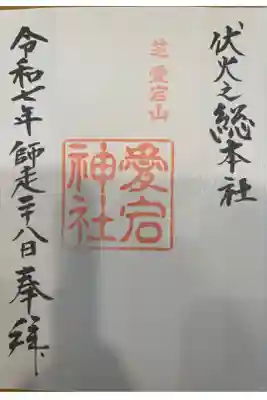 伏火之総本社
芝 愛宕山
愛宕神社
令和七年師走二十八日奉拝